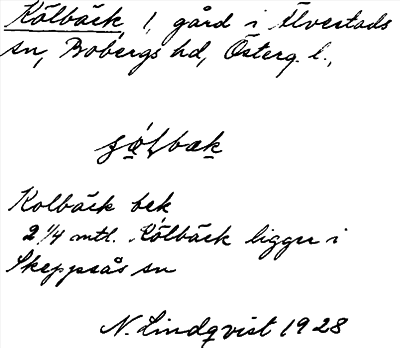 Kölbäck, 1, gård i Älvestads
sn, Bobergs hd, Österg. l.,
Kolbäck bek
2 1/4 mtl. Kölbäck ligger i
Skeppsås sn
N. Lindqvist 1928